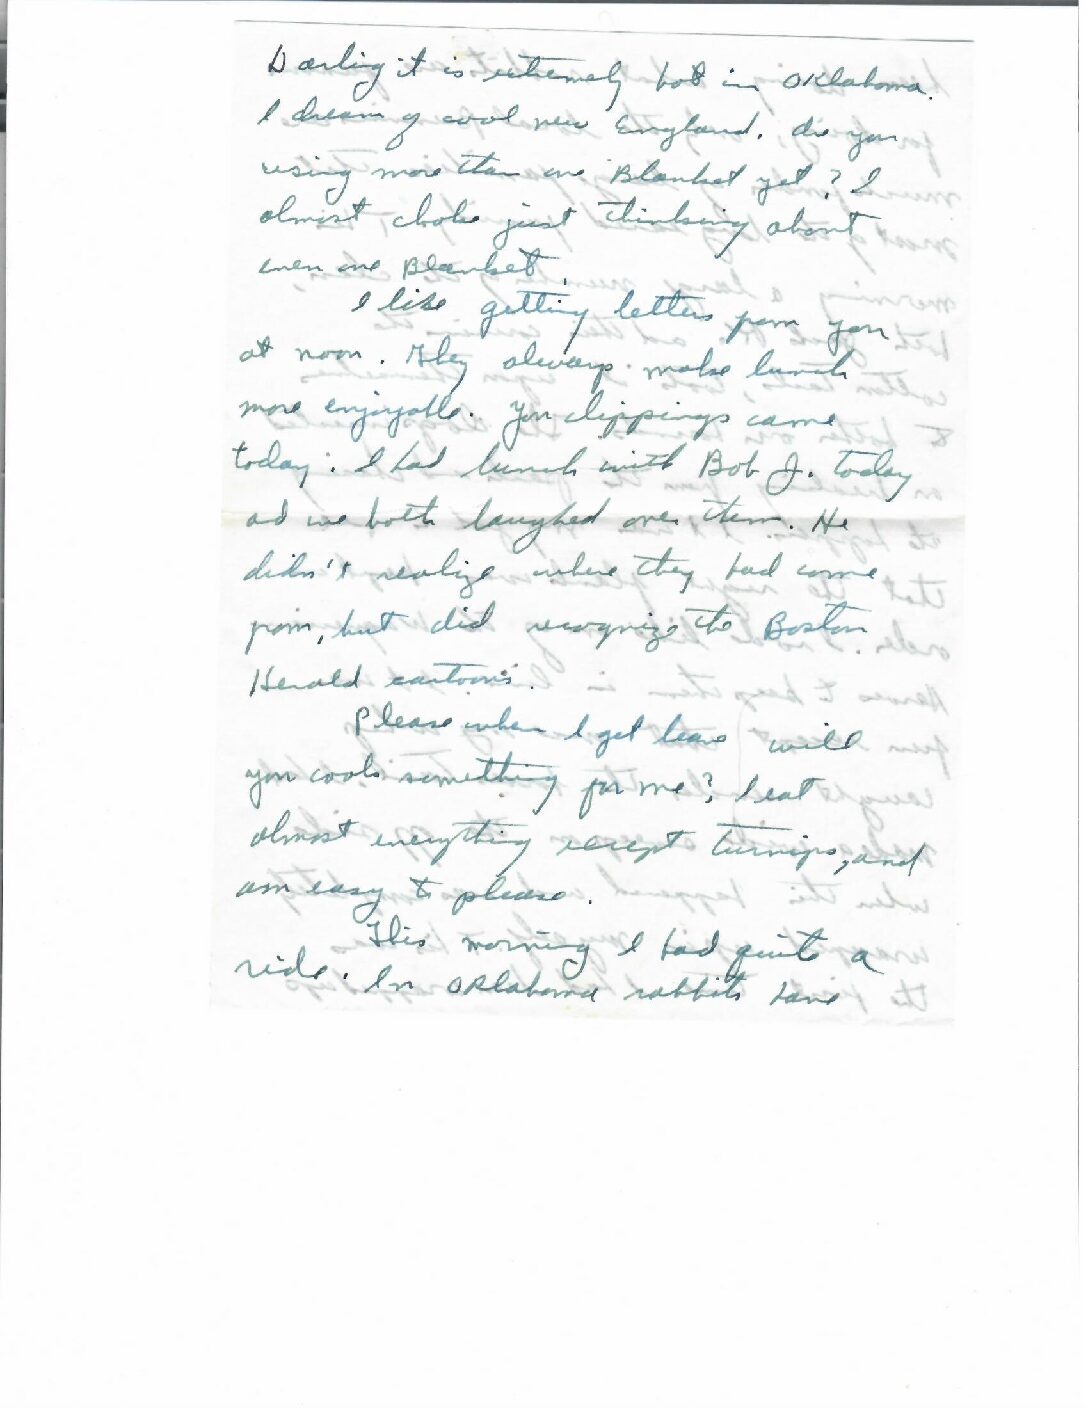 Darling it is extremely hot in Oklahoma.
I dream of cool new England. Are you
using more than one Blanket yet? I
almost choke just thinking about
even one Blanket.
I like getting letters from you
at noon. They always make lunch
more enjoyable. Your clippings came
today. I had lunch with Bob J. today
ad we both laughed over them. He
didn't realize where they had come
from, but did recognize the Boston
Herald cartoons.
Please when I get leave will
you cook something for me? I eat
almost everything except turnips, and
am easy to please.
This morning I had quite a
ride. In Oklahoma rabbits have